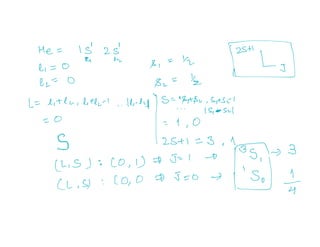 He = 1S¹ 2S¹
l₁ l₂
l₁ = 0 s₁ = ½
l₂ = 0 s₂ = ½
2S+1 L J
L = l₁+l₂, l₁+l₂-1 ... |l₁-l₂|
= 0
S = s₁+s₂, s₁+s₂-1
... |s₁-s₂|
= 1, 0
S
2S+1 = 3, 1
(L,S) : (0,1) ⇒ J=1 → ³S₁ → 3
(L,S) : (0,0 ⇒ J=0 → ¹S₀ 1
4